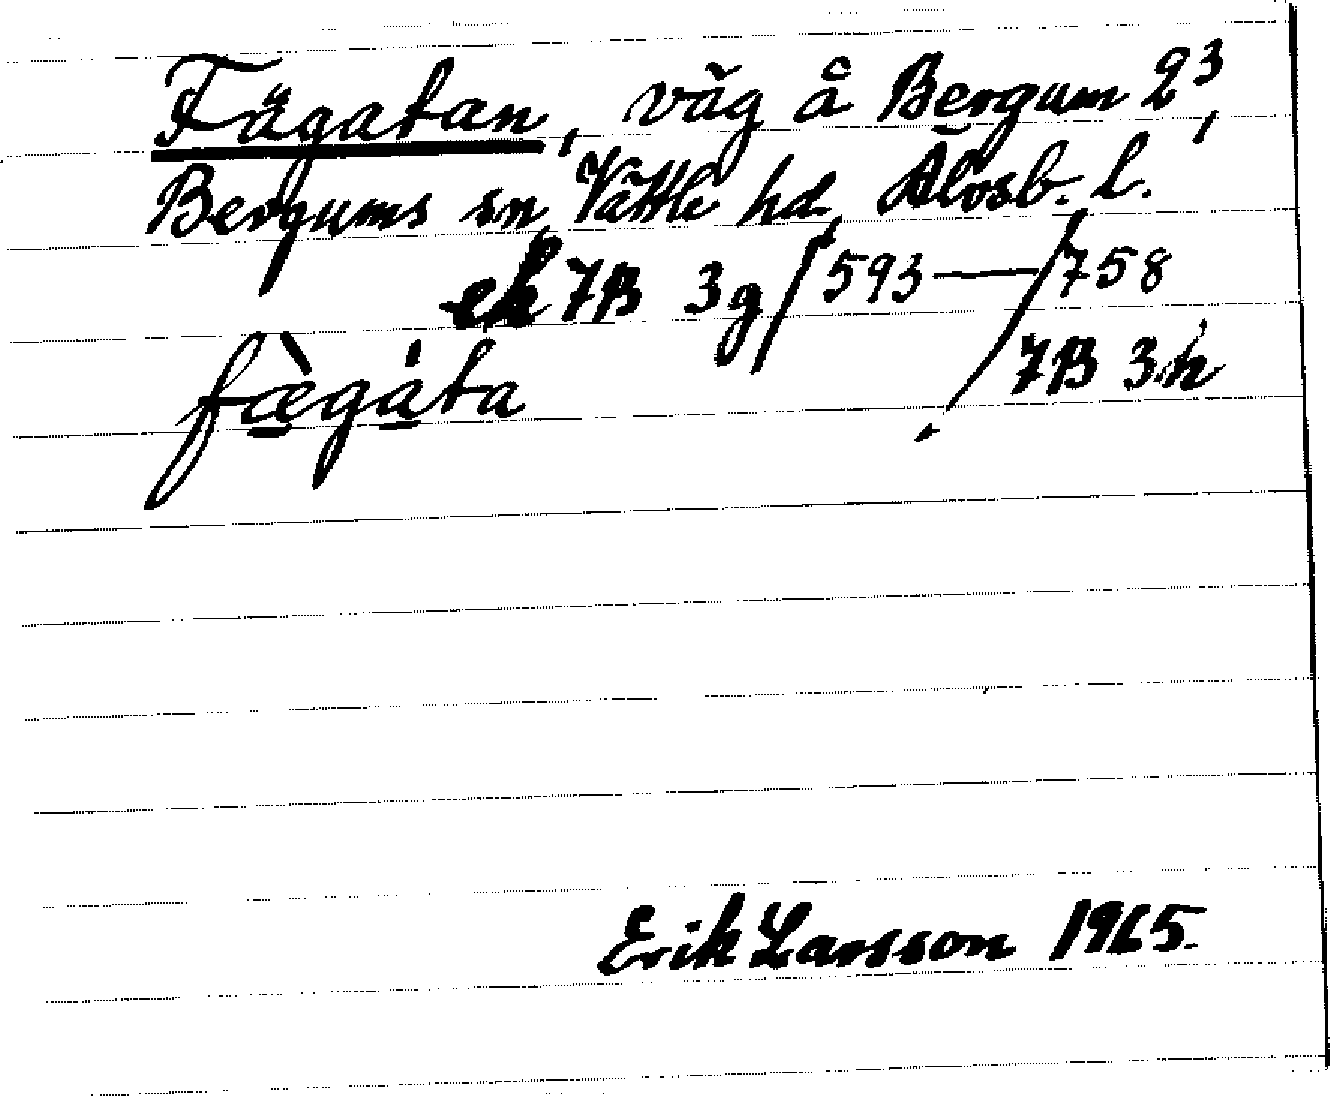 Fägatan, väg å Bergum 2³,
Bergums sn, Vättle hd, Älvsb. l.
ek 7B 3g/593—/758
7B 3h
fæ̀gáta
Erik Larsson 1965.